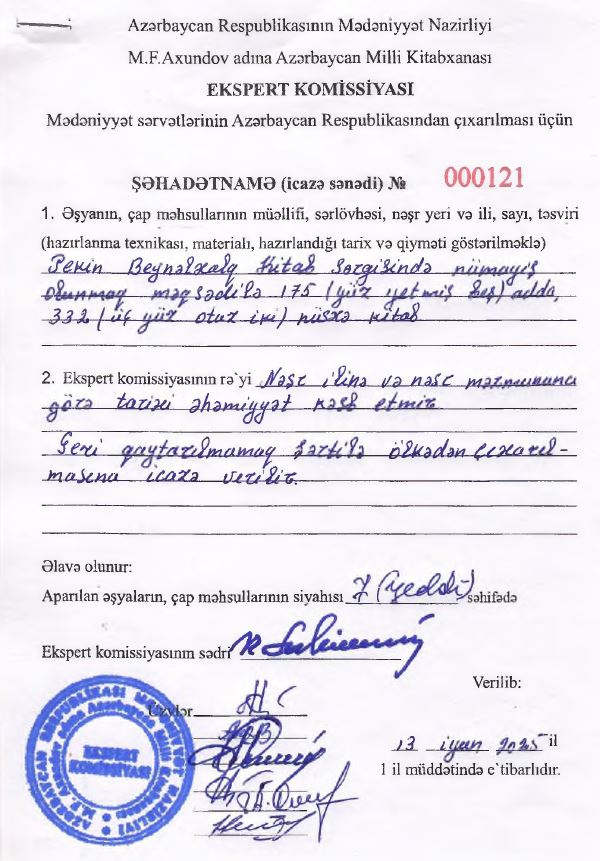 Azərbaycan Respublikasının Mədəniyyət Nazirliyi
M.F.Axundov adına Azərbaycan Milli Kitabxanası
EKSPERT KOMİSSİYASI
Mədəniyyət sərvətlərinin Azərbaycan Respublikasından çıxarılması üçün
ŞƏHADƏTNAMƏ (icazə sənədi) № 000121
1. Əşyanın, çap məhsullarının müəllifi, sərlövhəsi, nəşr yeri və ili, sayı, təsviri
(hazırlanma texnikası, materialı, hazırlandığı tarix və qiyməti göstərilməklə)
Pekin Beynəlxalq Kitab Sərgisində nümayiş
olunmaq məqsədilə 175 (yüz yetmiş beş) adda,
332 (üç yüz otuz iki) nüsxə kitab
2. Ekspert komissiyasının rə`yi Nəşr ilinə və nəşr məzmununa
görə tarixi əhəmiyyət kəsb etmir.
Geri qaytarılmamaq şərtilə ölkədən çıxarıl-
masına icazə verilir.
Əlavə olunur:
Aparılan əşyaların, çap məhsullarının siyahısı 7 (yeddi) səhifədə
Ekspert komissiyasının sədri
Verilib:
Üzvlər
13 iyun 2025 il
1 il müddətində e`tibarlıdır.
AZƏRBAYCAN RESPUBLİKASI MƏDƏNİYYƏT NAZİRLİYİ
M.F. Axundov adına Azərbaycan Milli Kitabxanası
EKSPERT
KOMİSSİYASI